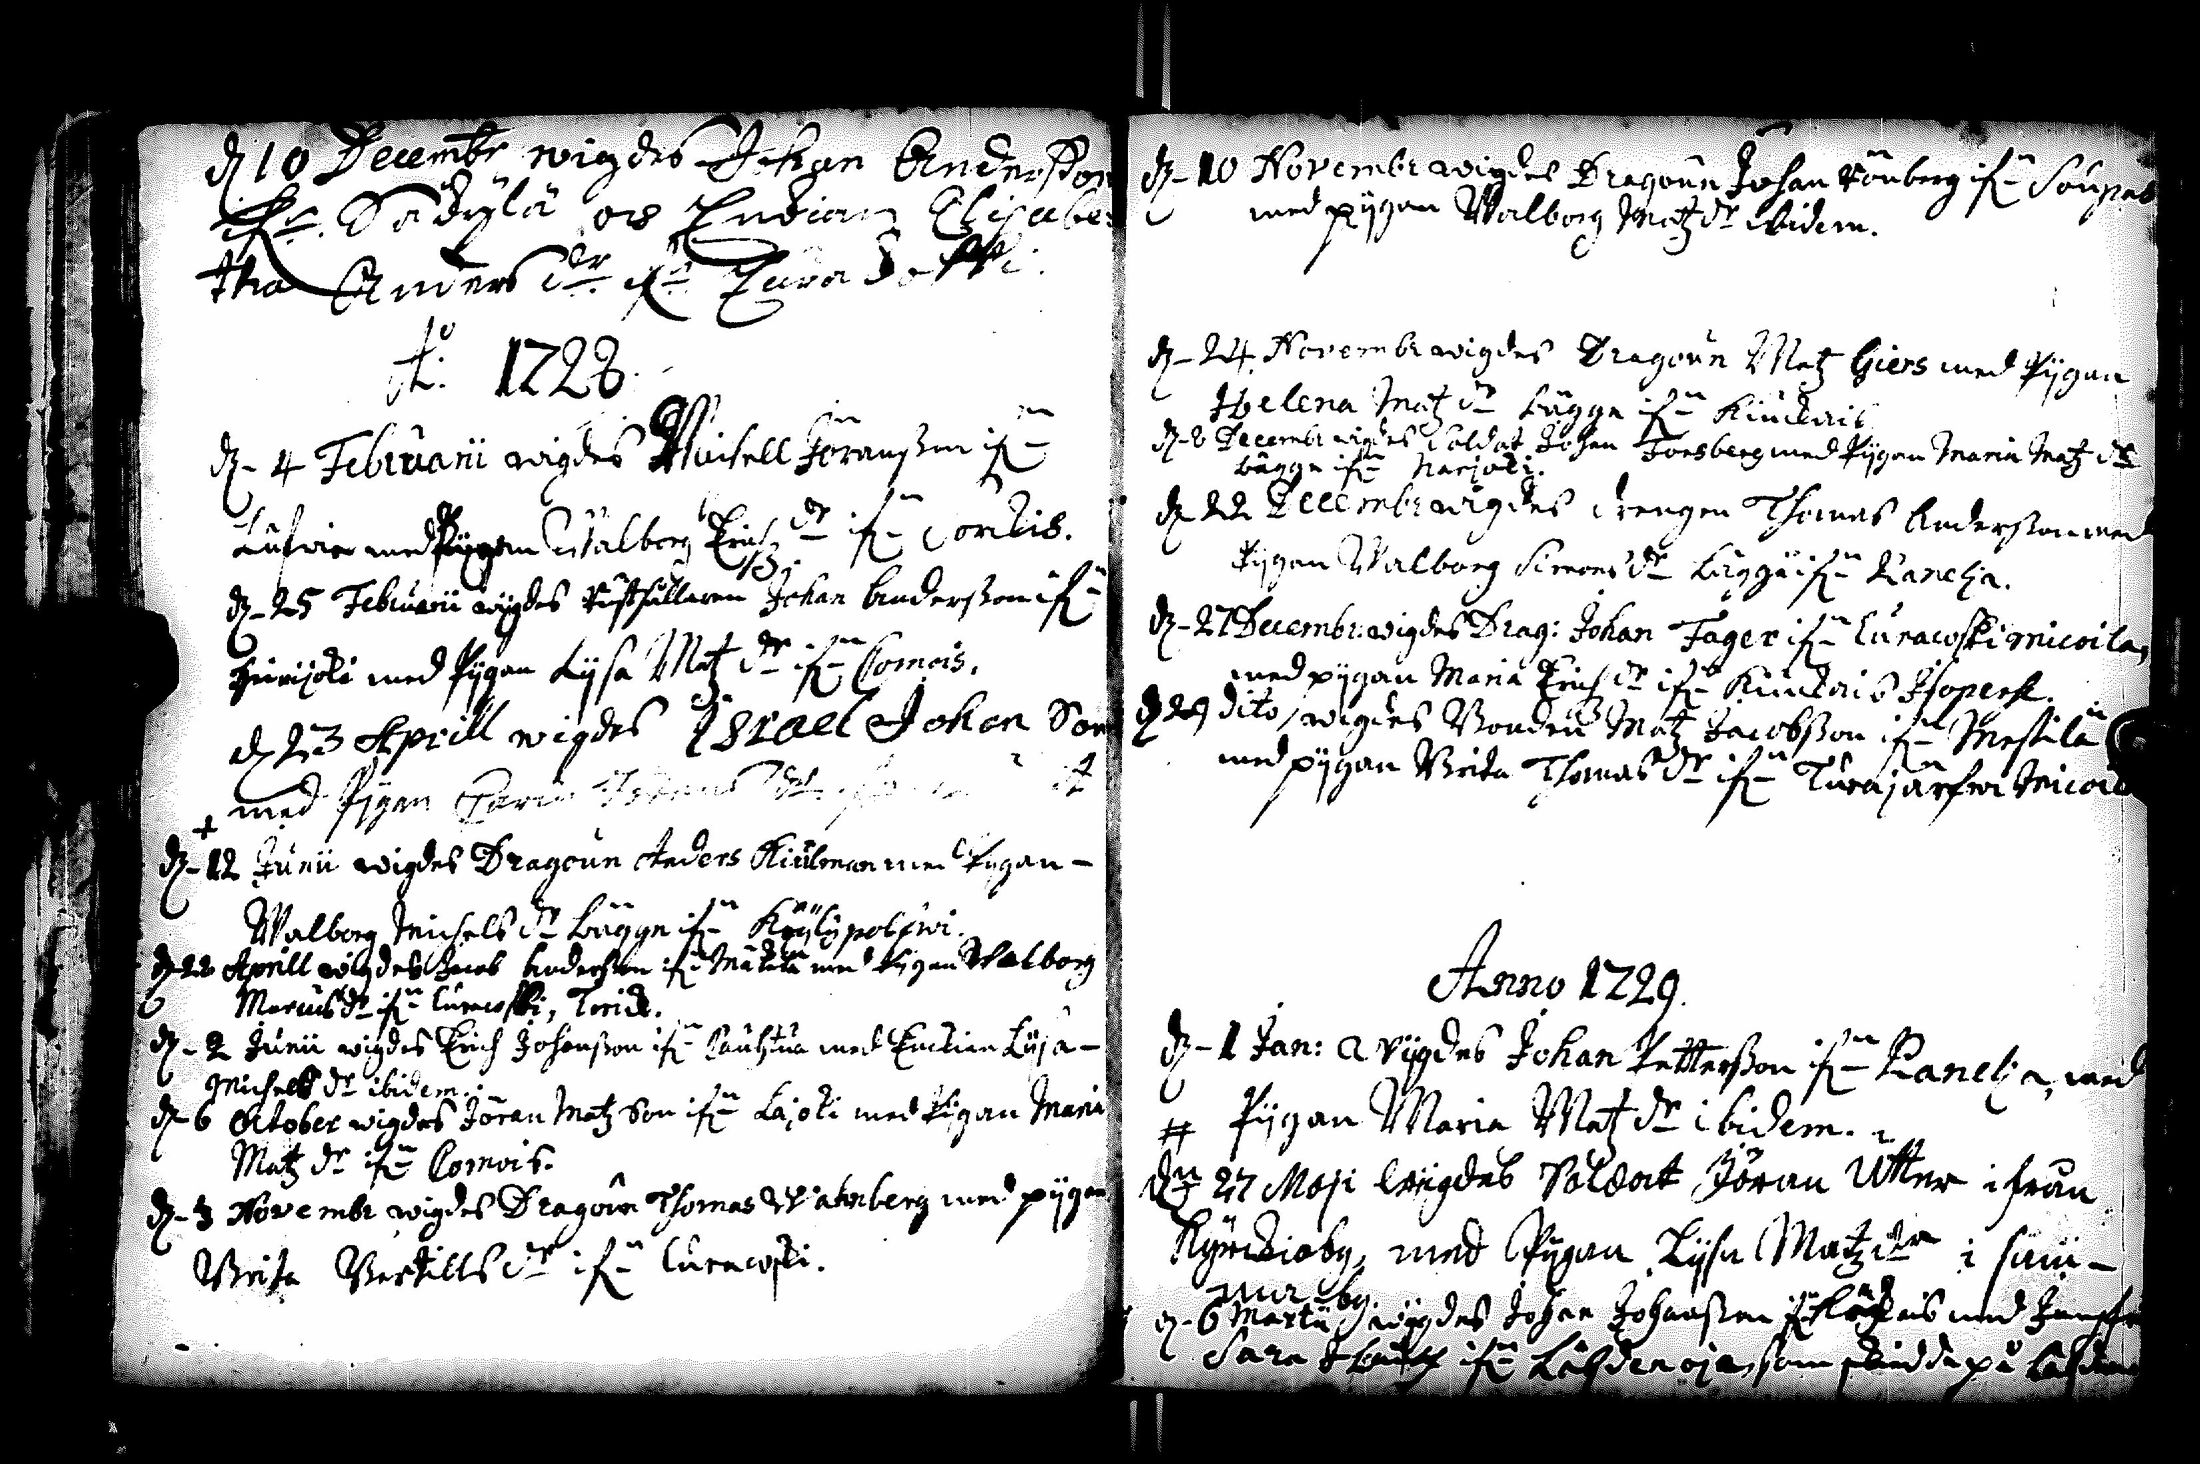 d 10 Decembr wigdes Johan Andersson
ifr. Sädylä och Enckian Elisabe-
tha Anders dr. ifr. Euraåoski.
Ao. 1728.
d. 4 Februarii wigdes Michell Jöransson ifrn
med Pygan Walborg Erichz dr ifrn
d. 25 Februarii wigdes Rusthållaren Johan Andersson ifrn
Hinnijoki med Pygan Lysa Matz dr ifrn Komois.
d 23 Aprill wigdes Israel Johan Son
med Pygan Carin
d. 12 Junii wigdes Dragoun Anders Kiulman med Pygan
Walborg Michels dr bägge ifrn Köylypolfwi.
d. 22 Aprill wigdes Jacob Andersson ifrn med Pygan Walborg
Marcus dr ifrn Euraoski,
d. 2 Junii wigdes Erich Johansson ifrn Kauhtua med Enckian Lysa
Michels dr ibidem.
d. 6 October wigdes Jöran Matz Son ifrn Lajoki med Pigan Maria
Matz dr ifrn Komois.
d. 3 Novembr wigdes Dragoun Thomas Wahnberg med pygan
Brita Bertills dr ifrn Euraoski.
d. 10 Novembr wigdes Dragoun Johan Rönberg ifrn
med pygan Walborg Matz dr ibidem.
d. 24. Novembr wigdes Dragoun Matz Giers med Pygan
Helena Matz dr bägge ifrn Kiuckais
d. 8 Decembr wigdes Soldat Johan Forsberg med Pygan Maria Matz dr
bägge ifrn Harjoki.
d. 22 Decembr wigdes drengen Thomas Andersson med
Pygan Walborg Simons dr bägge ifrn Panelja.
d. 27 Decembr: wigdes Drag: Johan Fager ifrn Euraoski micoila,
med pygan Maria Erichz dr ifrn Kiuckais
dito, wigdes Bonden Matz Jacobsson ifrn Mestilä
med pygan Brita Thomas dr ifrn Turajärfwi
Anno 1729.
d. 1 Jan: wygdes Johan Pettersson ifrn Panelja, med
# Pygan Maria Matz dr ibidem.
dn 27 Maji wigdes Soldat Jöran Utter ifrån
Kyrckioby, med Pygan Lysa Matz dr i sam-
ma by.
d. 6 Martii wigdes Johan Johansson ifrn med
Sara ifrn som på